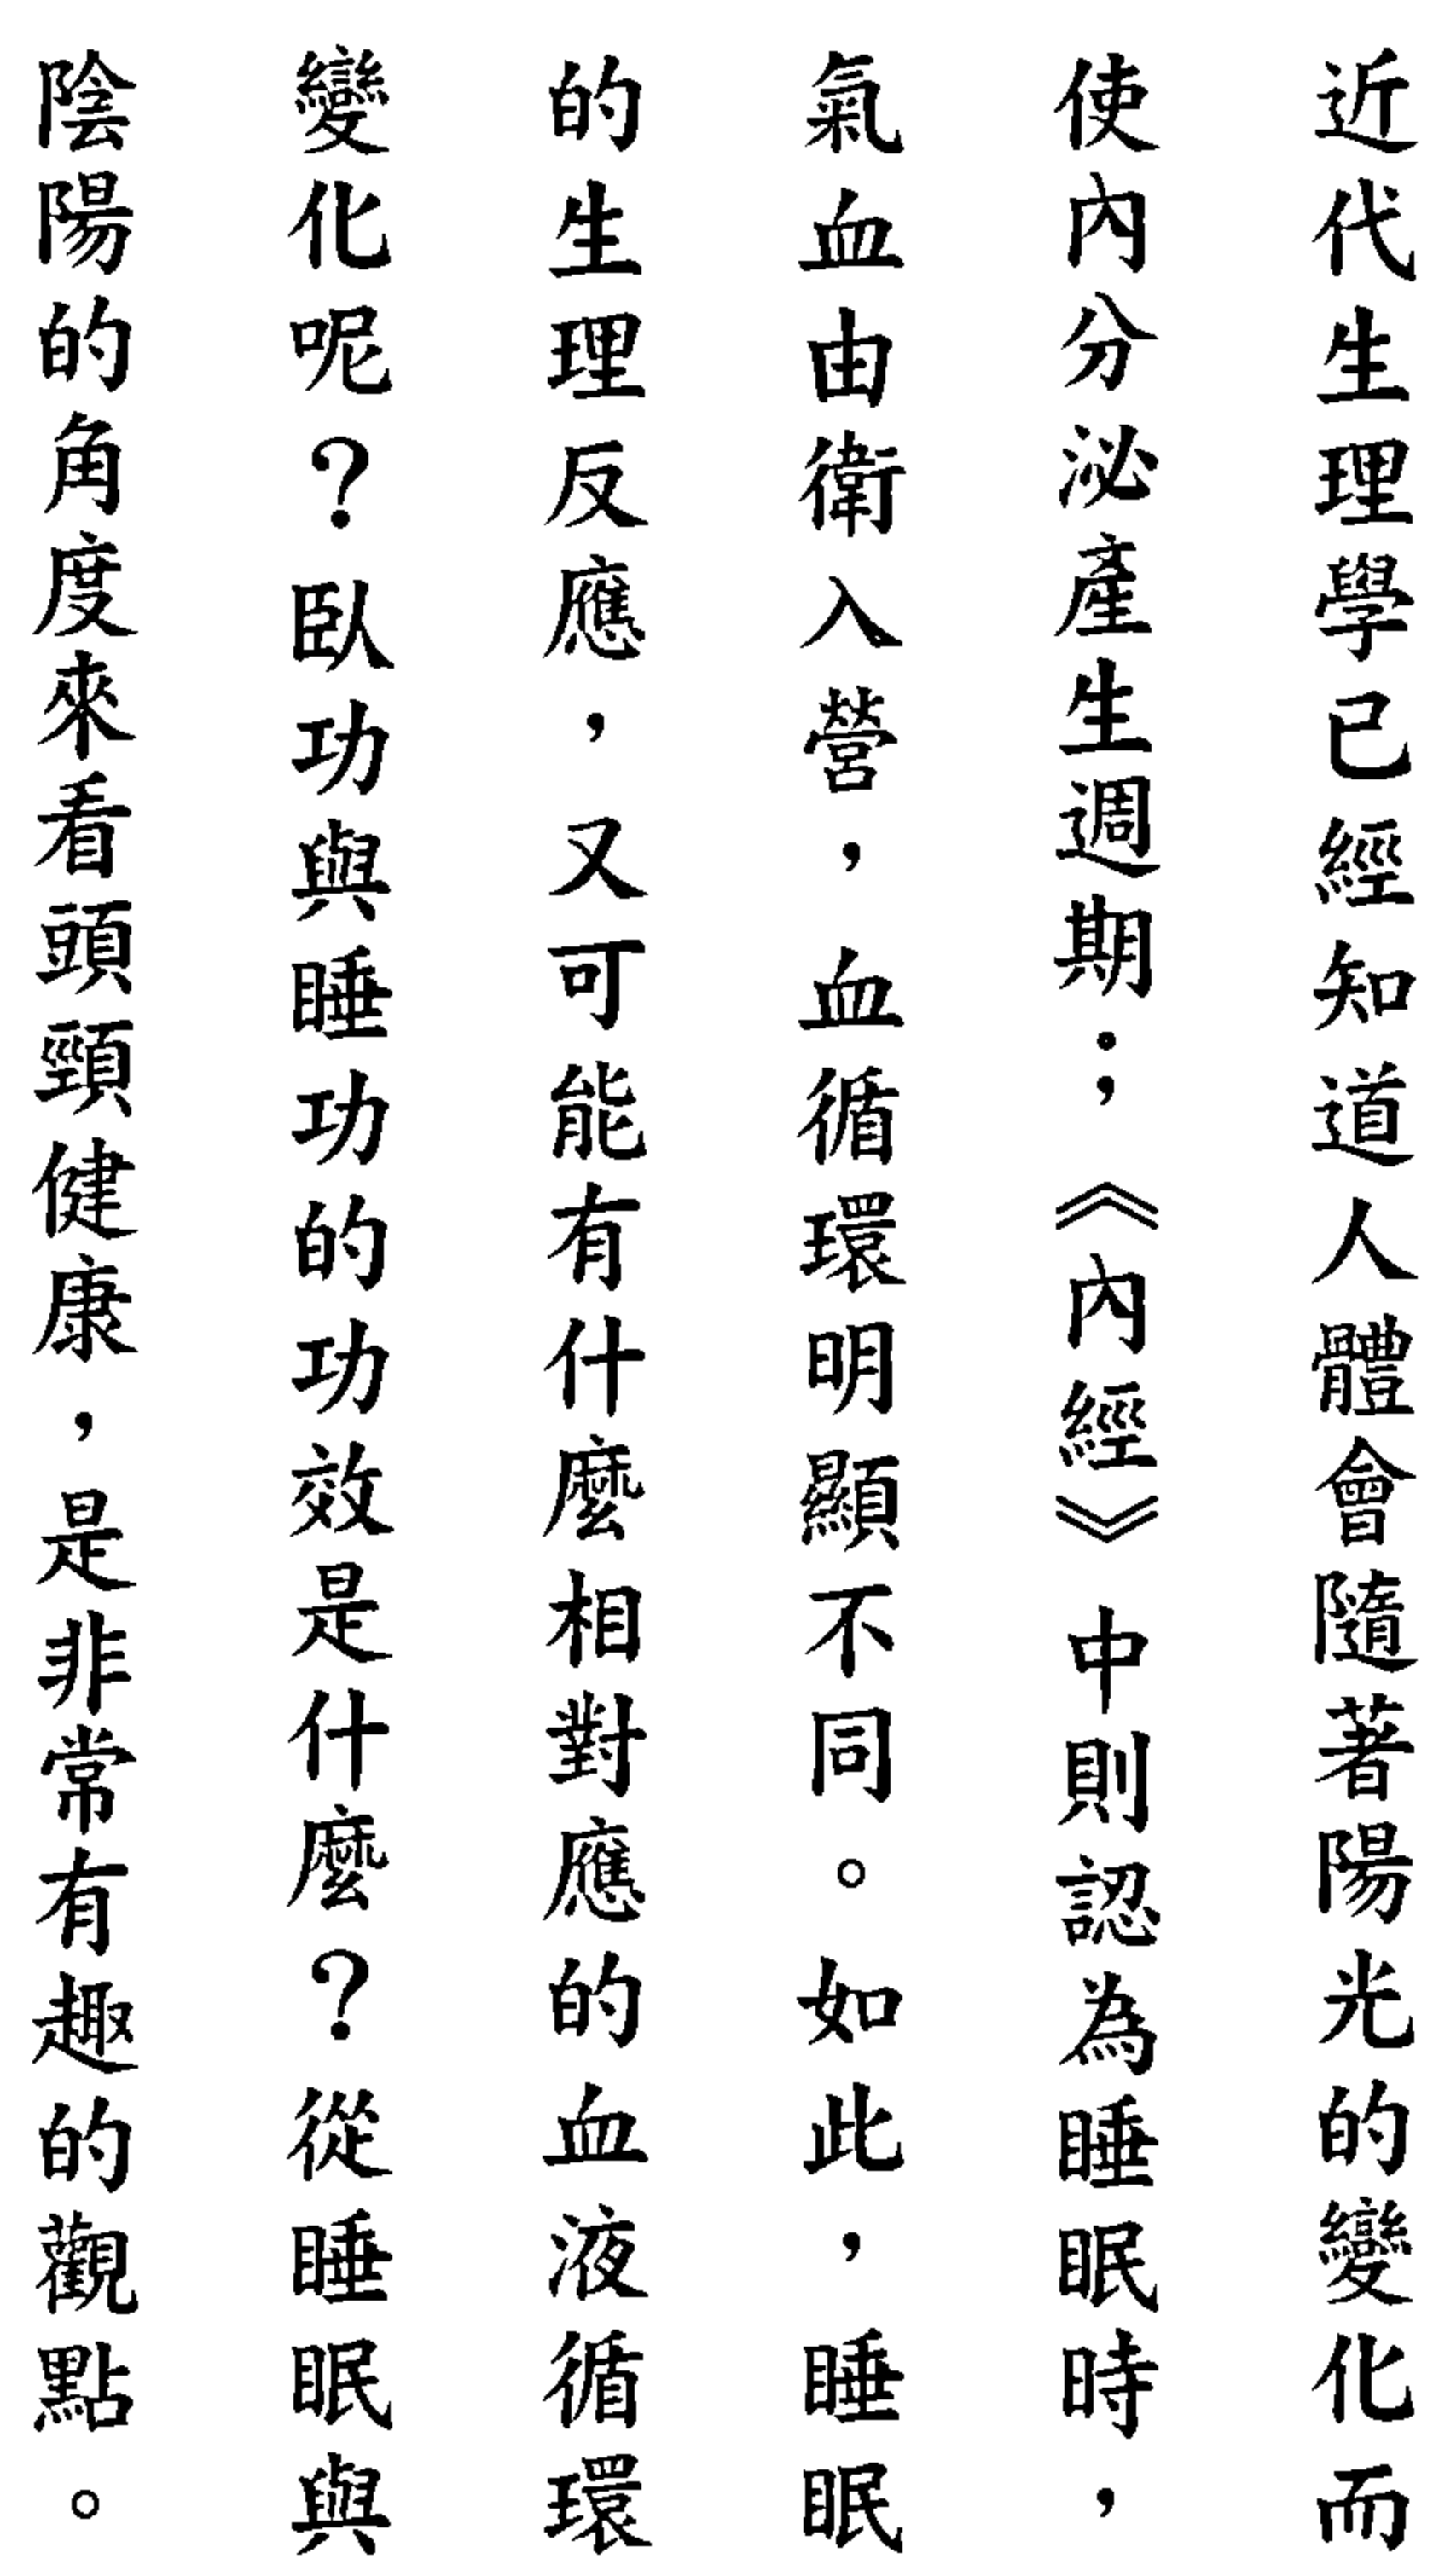 近代生理學已經知道人體會隨著陽光的變化而
使內分泌產生週期；《內經》中則認為睡眠時，
氣血由衛入營，血循環明顯不同。如此，睡眠
的生理反應，又可能有什麼相對應的血液循環
變化呢？臥功與睡功的功效是什麼？從睡眠與
陰陽的角度來看頭頸健康，是非常有趣的觀點。